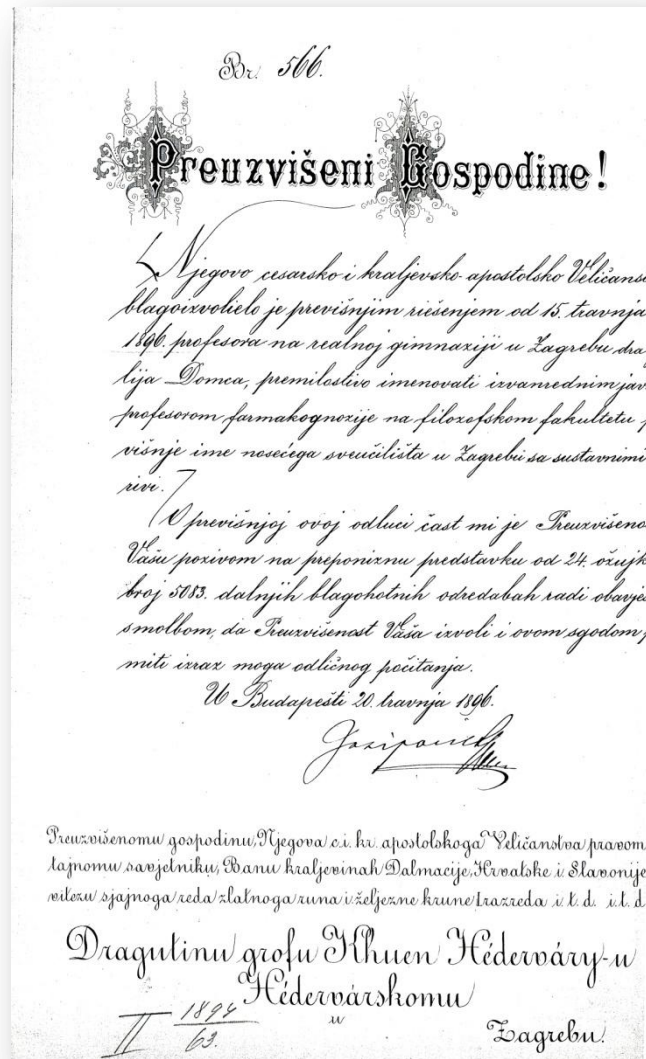 Br. 566.
Preuzvišeni Gospodine!
Njegovo cesarsko i kraljevsko apostolsko Veličans
blagoizvolielo je previšnjim riešenjem od 15. travnja
1896. profesora na realnoj gimnaziji u Zagrebu dra
lija Domca, premilostivo imenovati izvanrednim jav
profesorom farmakognozije na filozofskom fakultetu p
višnje ime nosećega sveučilišta u Zagrebu sa sustavnimi
rivi.
O previšnjoj ovoj odluci čast mi je Preuzvišeno
Vašu pozivom na preponiznu predstavku od 24. ožujk
broj 5083. dalnjih blagohotnih odredabah radi obavjes
s molbom, da Preuzvišenost Vaša izvoli i ovom sgodom p
miti izraz moga odličnog počitanja.
U Budapešti 20. travnja 1896.
Josipović
Preuzvišenomu gospodinu, Njegova c. i. kr. apostolskoga Veličanstva pravom
tajnomu savjetniku, Banu kraljevinah Dalmacije, Hrvatske i Slavonije
vitezu sjajnoga reda zlatnoga runa i željezne krune I razreda i. t. d. i. t. d
Dragutinu grofu Khuen Héderváry-u
Hédervárskomu
u
Zagrebu.
II 189
63.